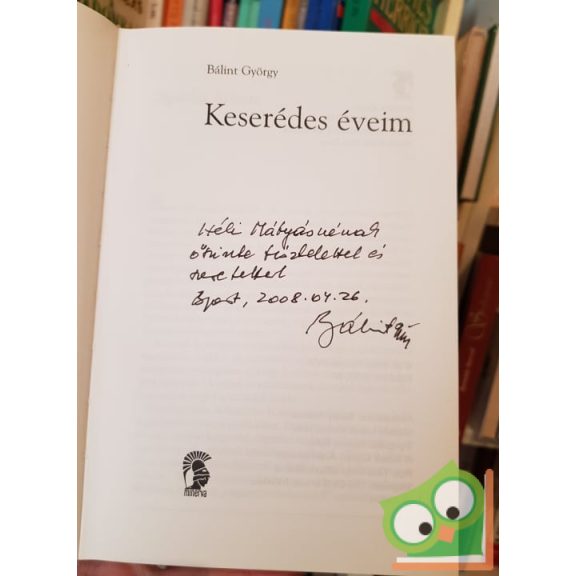 Bálint György
Keserédes éveim
Mátyásnénak
őszinte tisztelettel és
szeretettel
Bpest, 2008.04.26.
Bálint
minerva